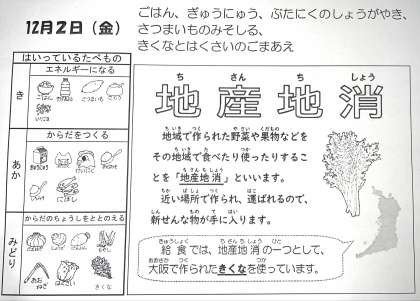 12月2日（金）
ごはん、ぎゅうにゅう、ぶたにくのしょうがやき、
さつまいものみそしる、
きくなとはくさいのごまあえ
はいっているたべもの
エネルギーになる
き
さつまいも
からだをつくる
あか
にぼし
からだのちょうしをととのえる
みどり
はくさい
きくな
ち さん ち しょう
地産地消
地域で作られた野菜や果物などを
その地域で食べたり使ったりするこ
とを「地産地消」といいます。
近い場所で作られ、運ばれるので、
新せんな物が手に入ります。
給食では、地産地消の一つとして、
大阪で作られたきくなを使っています。